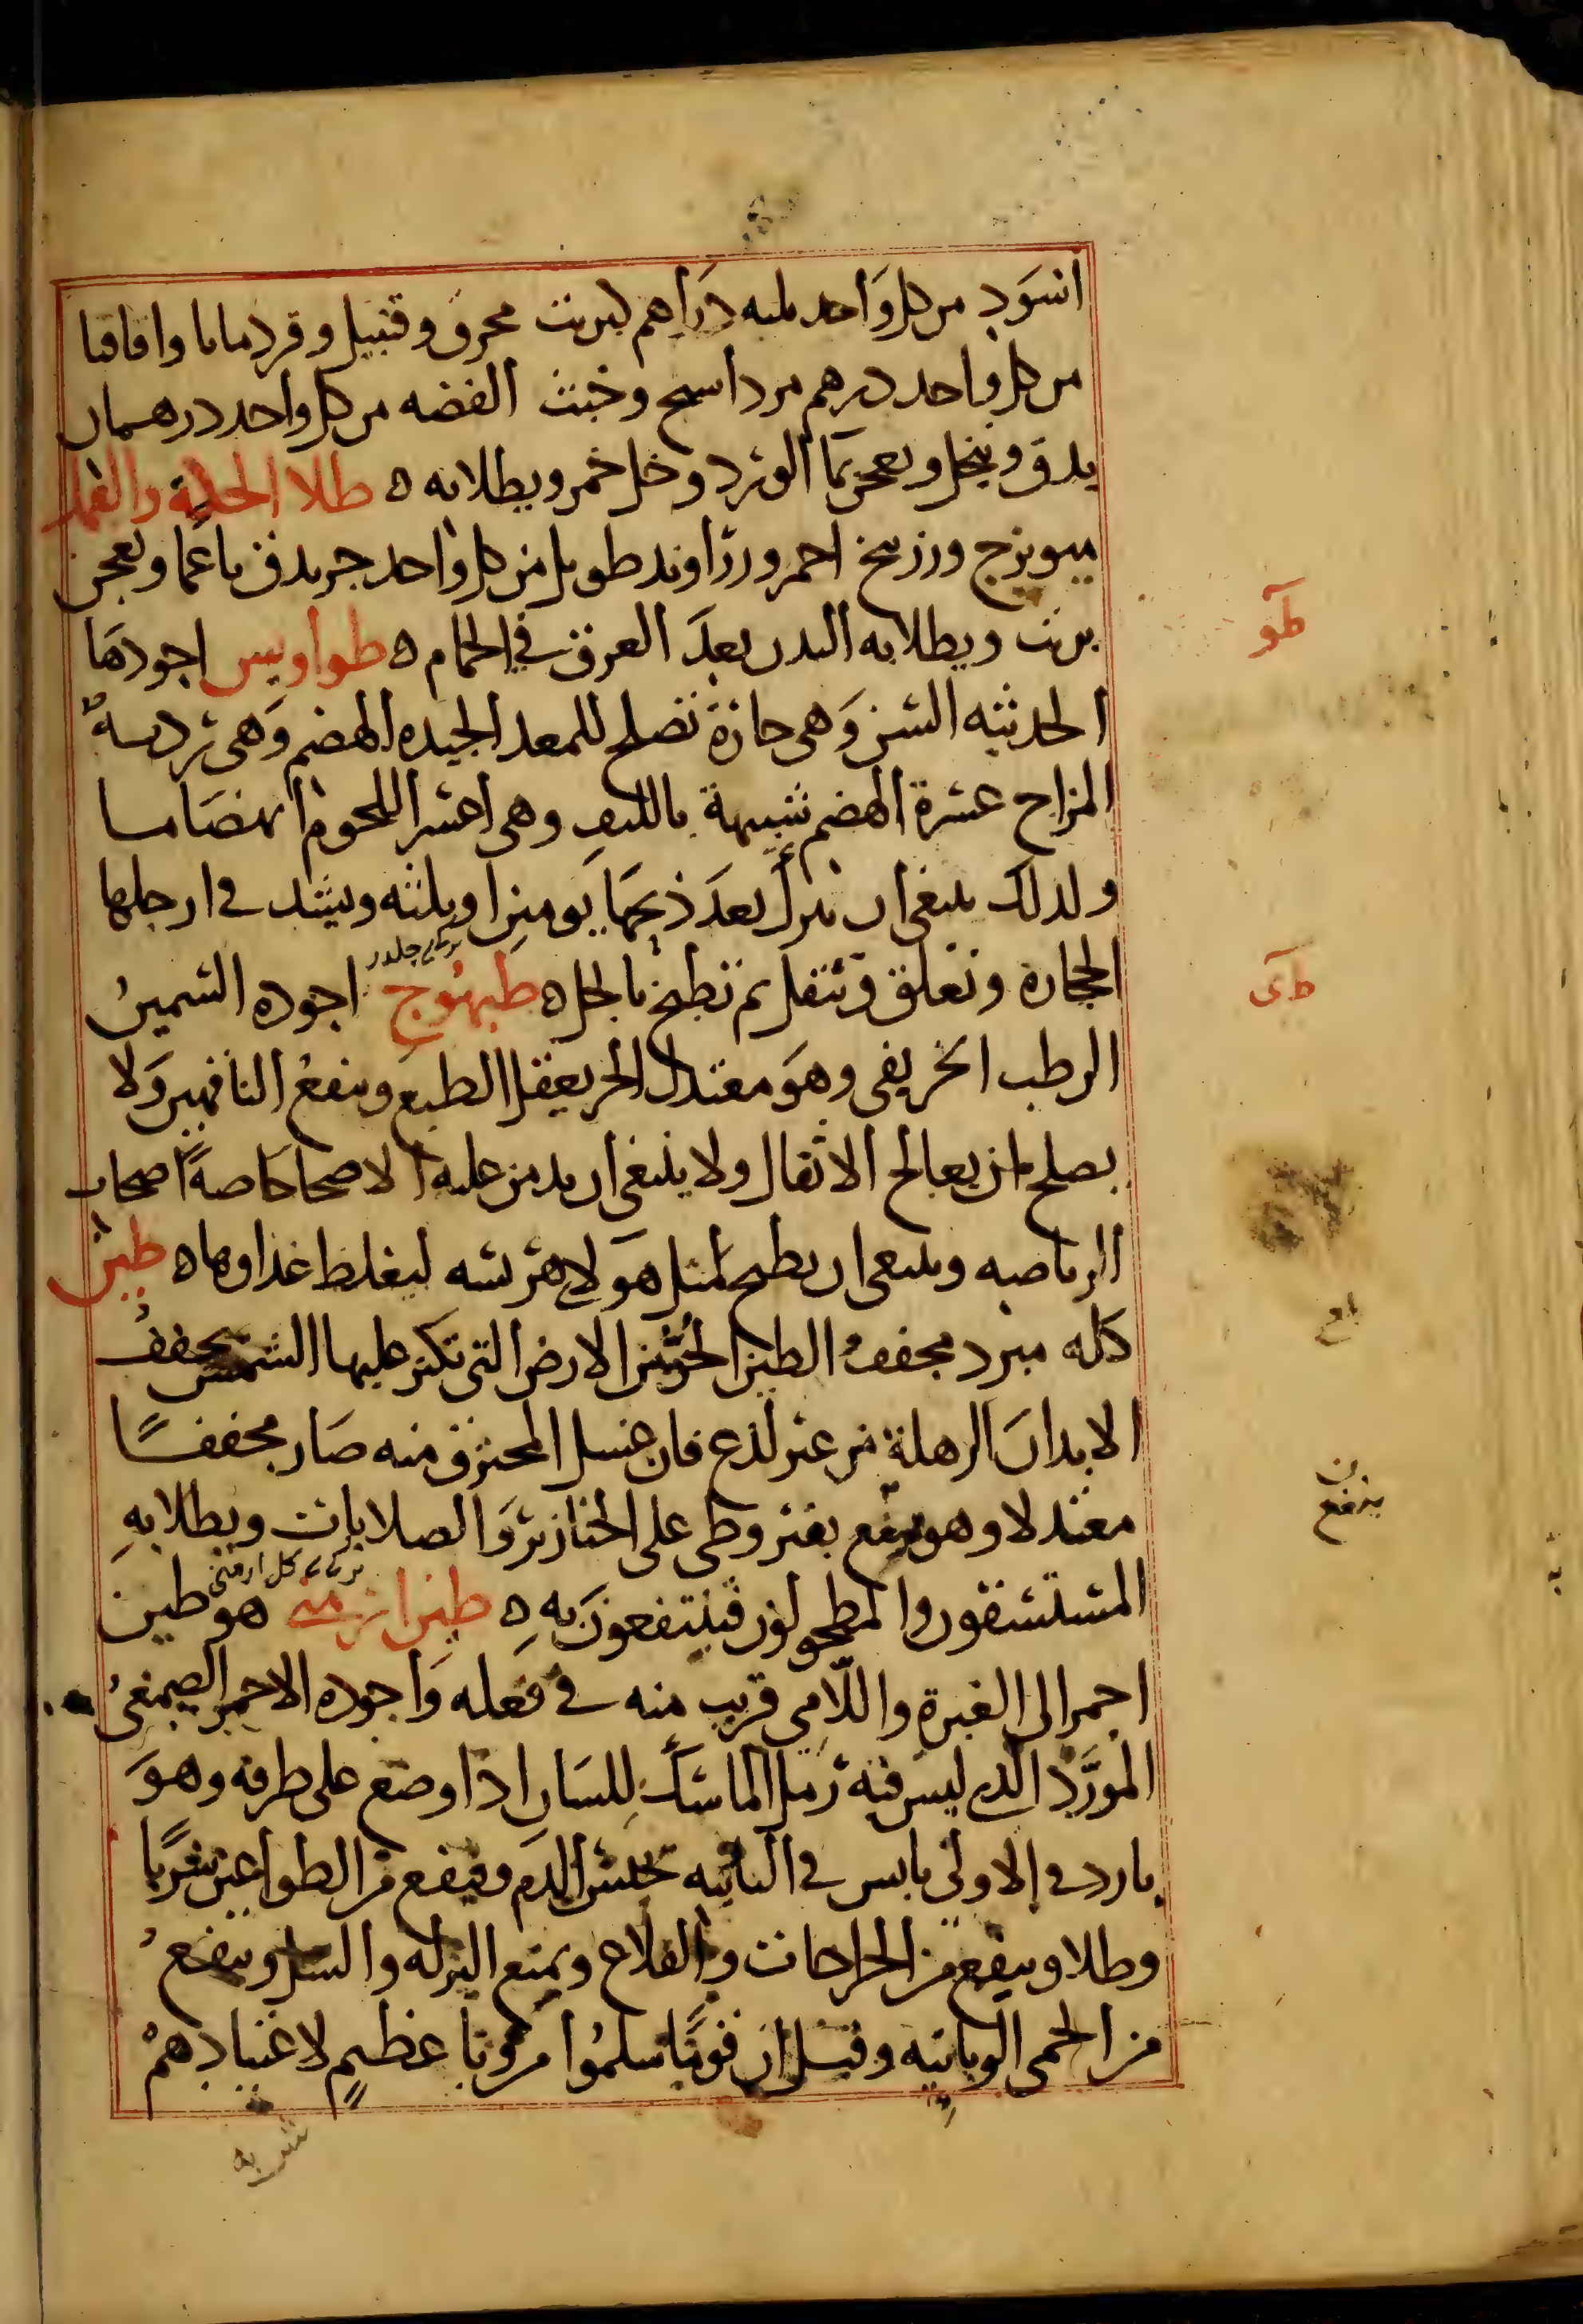 اسود من كل واحد ثلثه دراهم كبريت محرق وقنبيل وقردمانا واقاقيا
من كل واحد درهم مرداسنج وخبث الفضه من كل واحد درهمان
يدق وينخل ويعجن بما الورد وخل خمر ويطلا به ه طلا الحكة والقمل
ميويزج وزرنيخ احمر وزراوند طويل من كل واحد جز يدق ناعما ويعجن
بزيت ويطلا به البدن بعد العرق في الحمام ه طواويس اجودها
الحديثه السن وهي حارة تصلح للمعد الجيده الهضم وهي رديه
المزاج عسرة الهضم شبيهة بالليف وهي اعسر اللحوم انهضاما
ولذلك ينبغي ان تترك بعد ذبحها يومين او ثلثه ويشد في ارجلها
الحجارة وتعلق وتثقل ثم تطبخ بالخل ه طيهوج اجوده السمين
الرطب الخريفي وهو معتدل الحر يعقل الطبع وينفع الناقهين ولا
يصلح لمن يعالج الاثقال ولا ينبغي ان يدمن عليه الاصحا خاصة اصحاب
الرياضه وينبغي ان يطبخ لمثل هولا هريسه ليغلظ غذاوها ه طين
كله مبرد مجفف الطين الحر من الارض التي تكثر عليها الشمس يجفف
الابدان الرهلة من غير لذع فان غسل المحترق منه صار مجففا
معتدلا وهو ينفع بقيروطي على الخنازير والصلابات ويطلا به
المستسقون والمطحولون فينتفعون به ه طين ارمني هو طين
احمر الى الغبرة واللامي قريب منه في فعله واجوده الاحمر الصمغي
المورد الذي ليس فيه رمل الماسك للسان اذا وضع على طرفه وهو
بارد في الاولى يابس في الثانيه يحبس الدم وينفع من الطواعين شربا
وطلا وينفع من الجراحات والقلاع ويمنع النزله والسل وينفع
من الحمى الوبائيه وقيل ان قوما سلموا من وبا عظيم لاعتيادهم
طو
طى
ينفع